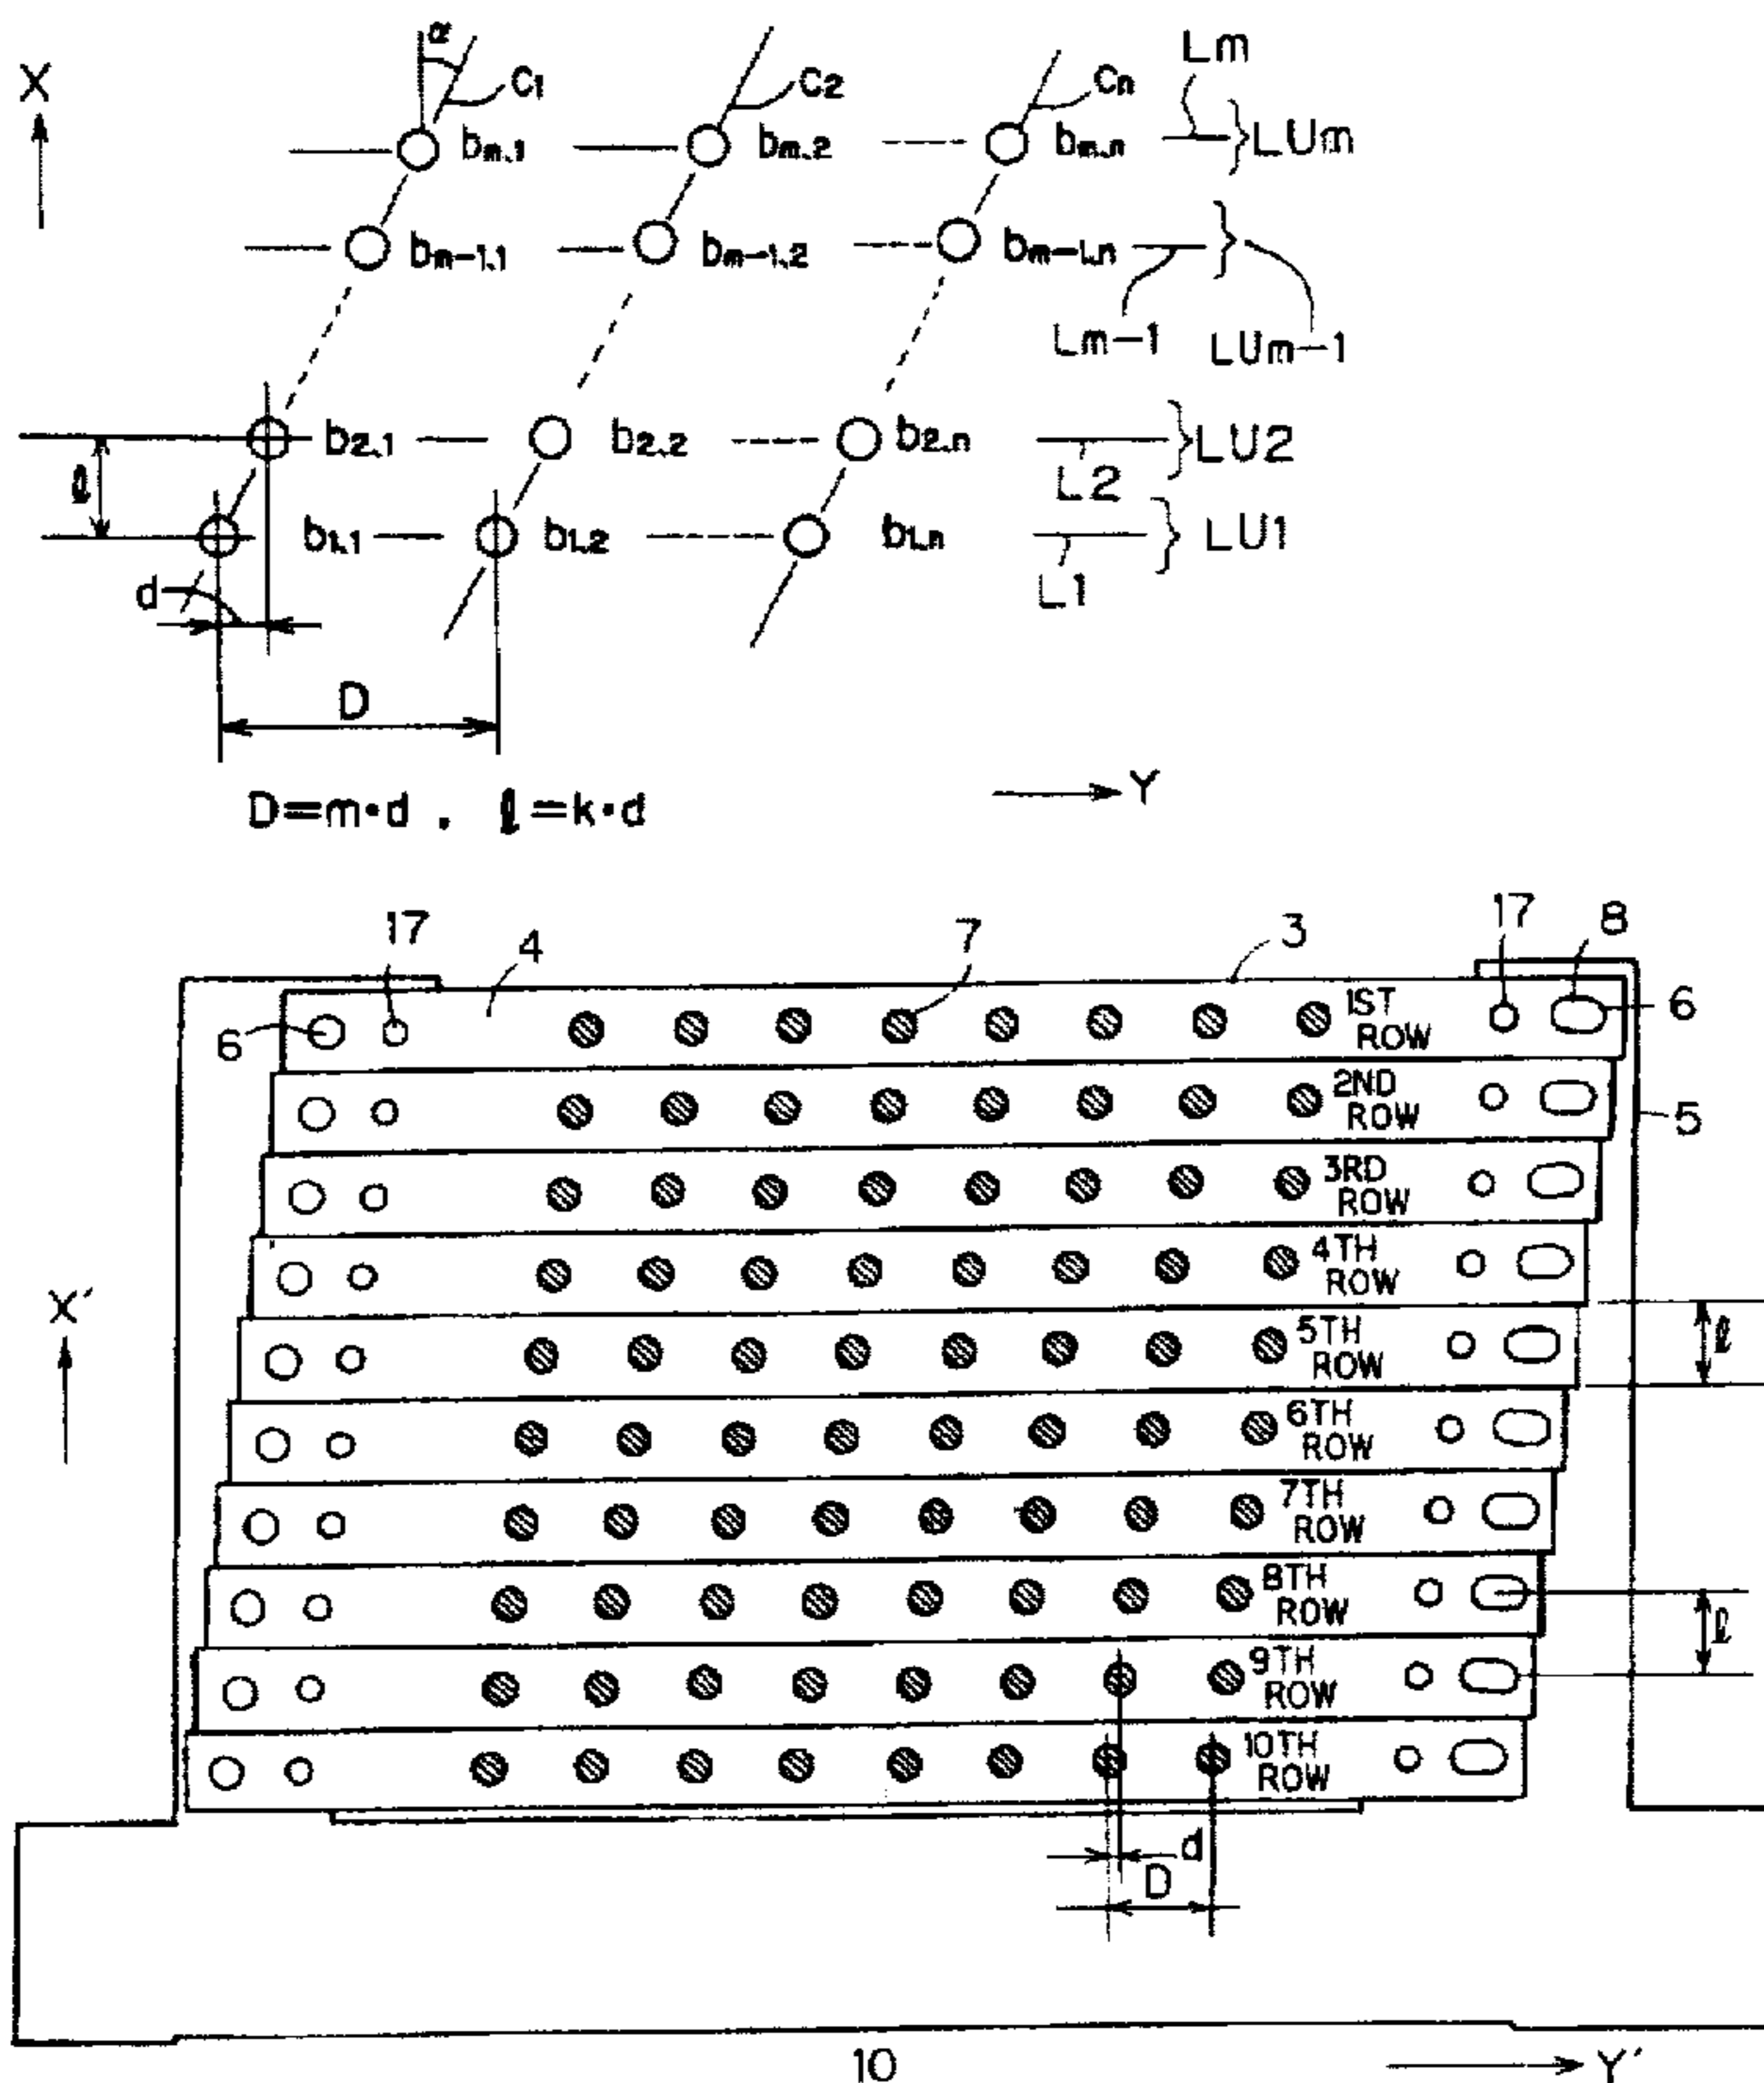 X
α
C1
C2
Cn
Lm
bm.1
bm.2
bm.n
LUm
bm-1.1
bm-1.2
bm-1.n
Lm-1
LUm-1
b2.1
b2.2
b2.n
L2
LU2
ℓ
b1.1
b1.2
b1.n
L1
LU1
d
D
Y
D=m·d . ℓ=k·d
17
4
7
3
17
8
6
6
1ST ROW
2ND ROW
5
3RD ROW
4TH ROW
X′
5TH ROW
ℓ
6TH ROW
7TH ROW
8TH ROW
ℓ
9TH ROW
10TH ROW
d
D
10
Y′